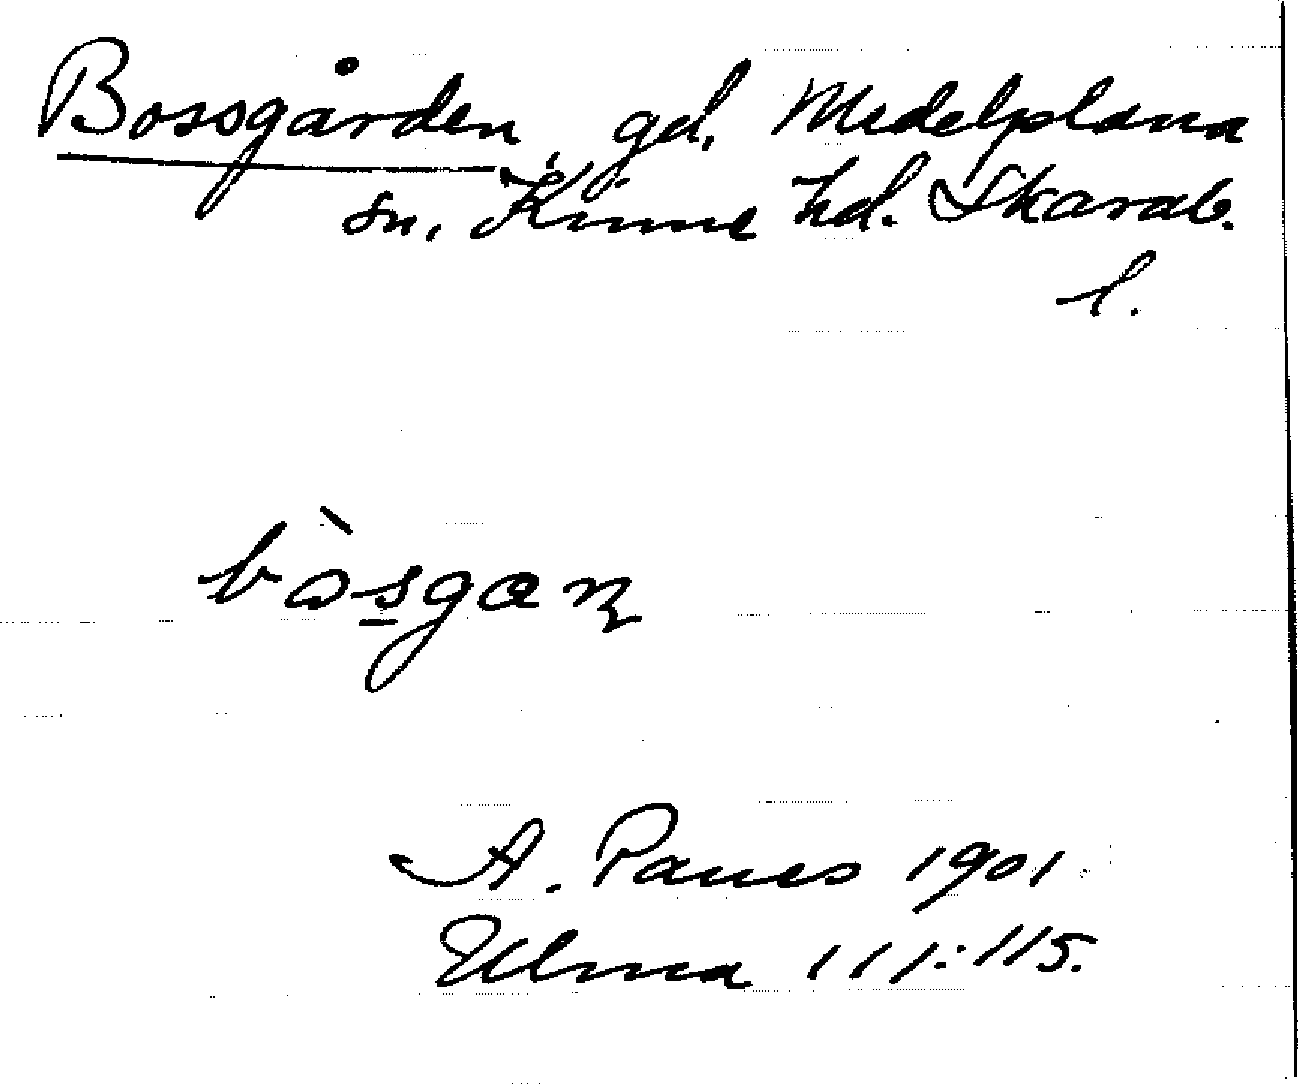 Bossgården, gd, Medelplana
sn, Kinne hd. Skarab.
l.
bòsgaɳ
A. Paues 1901
Ulma 111:115.